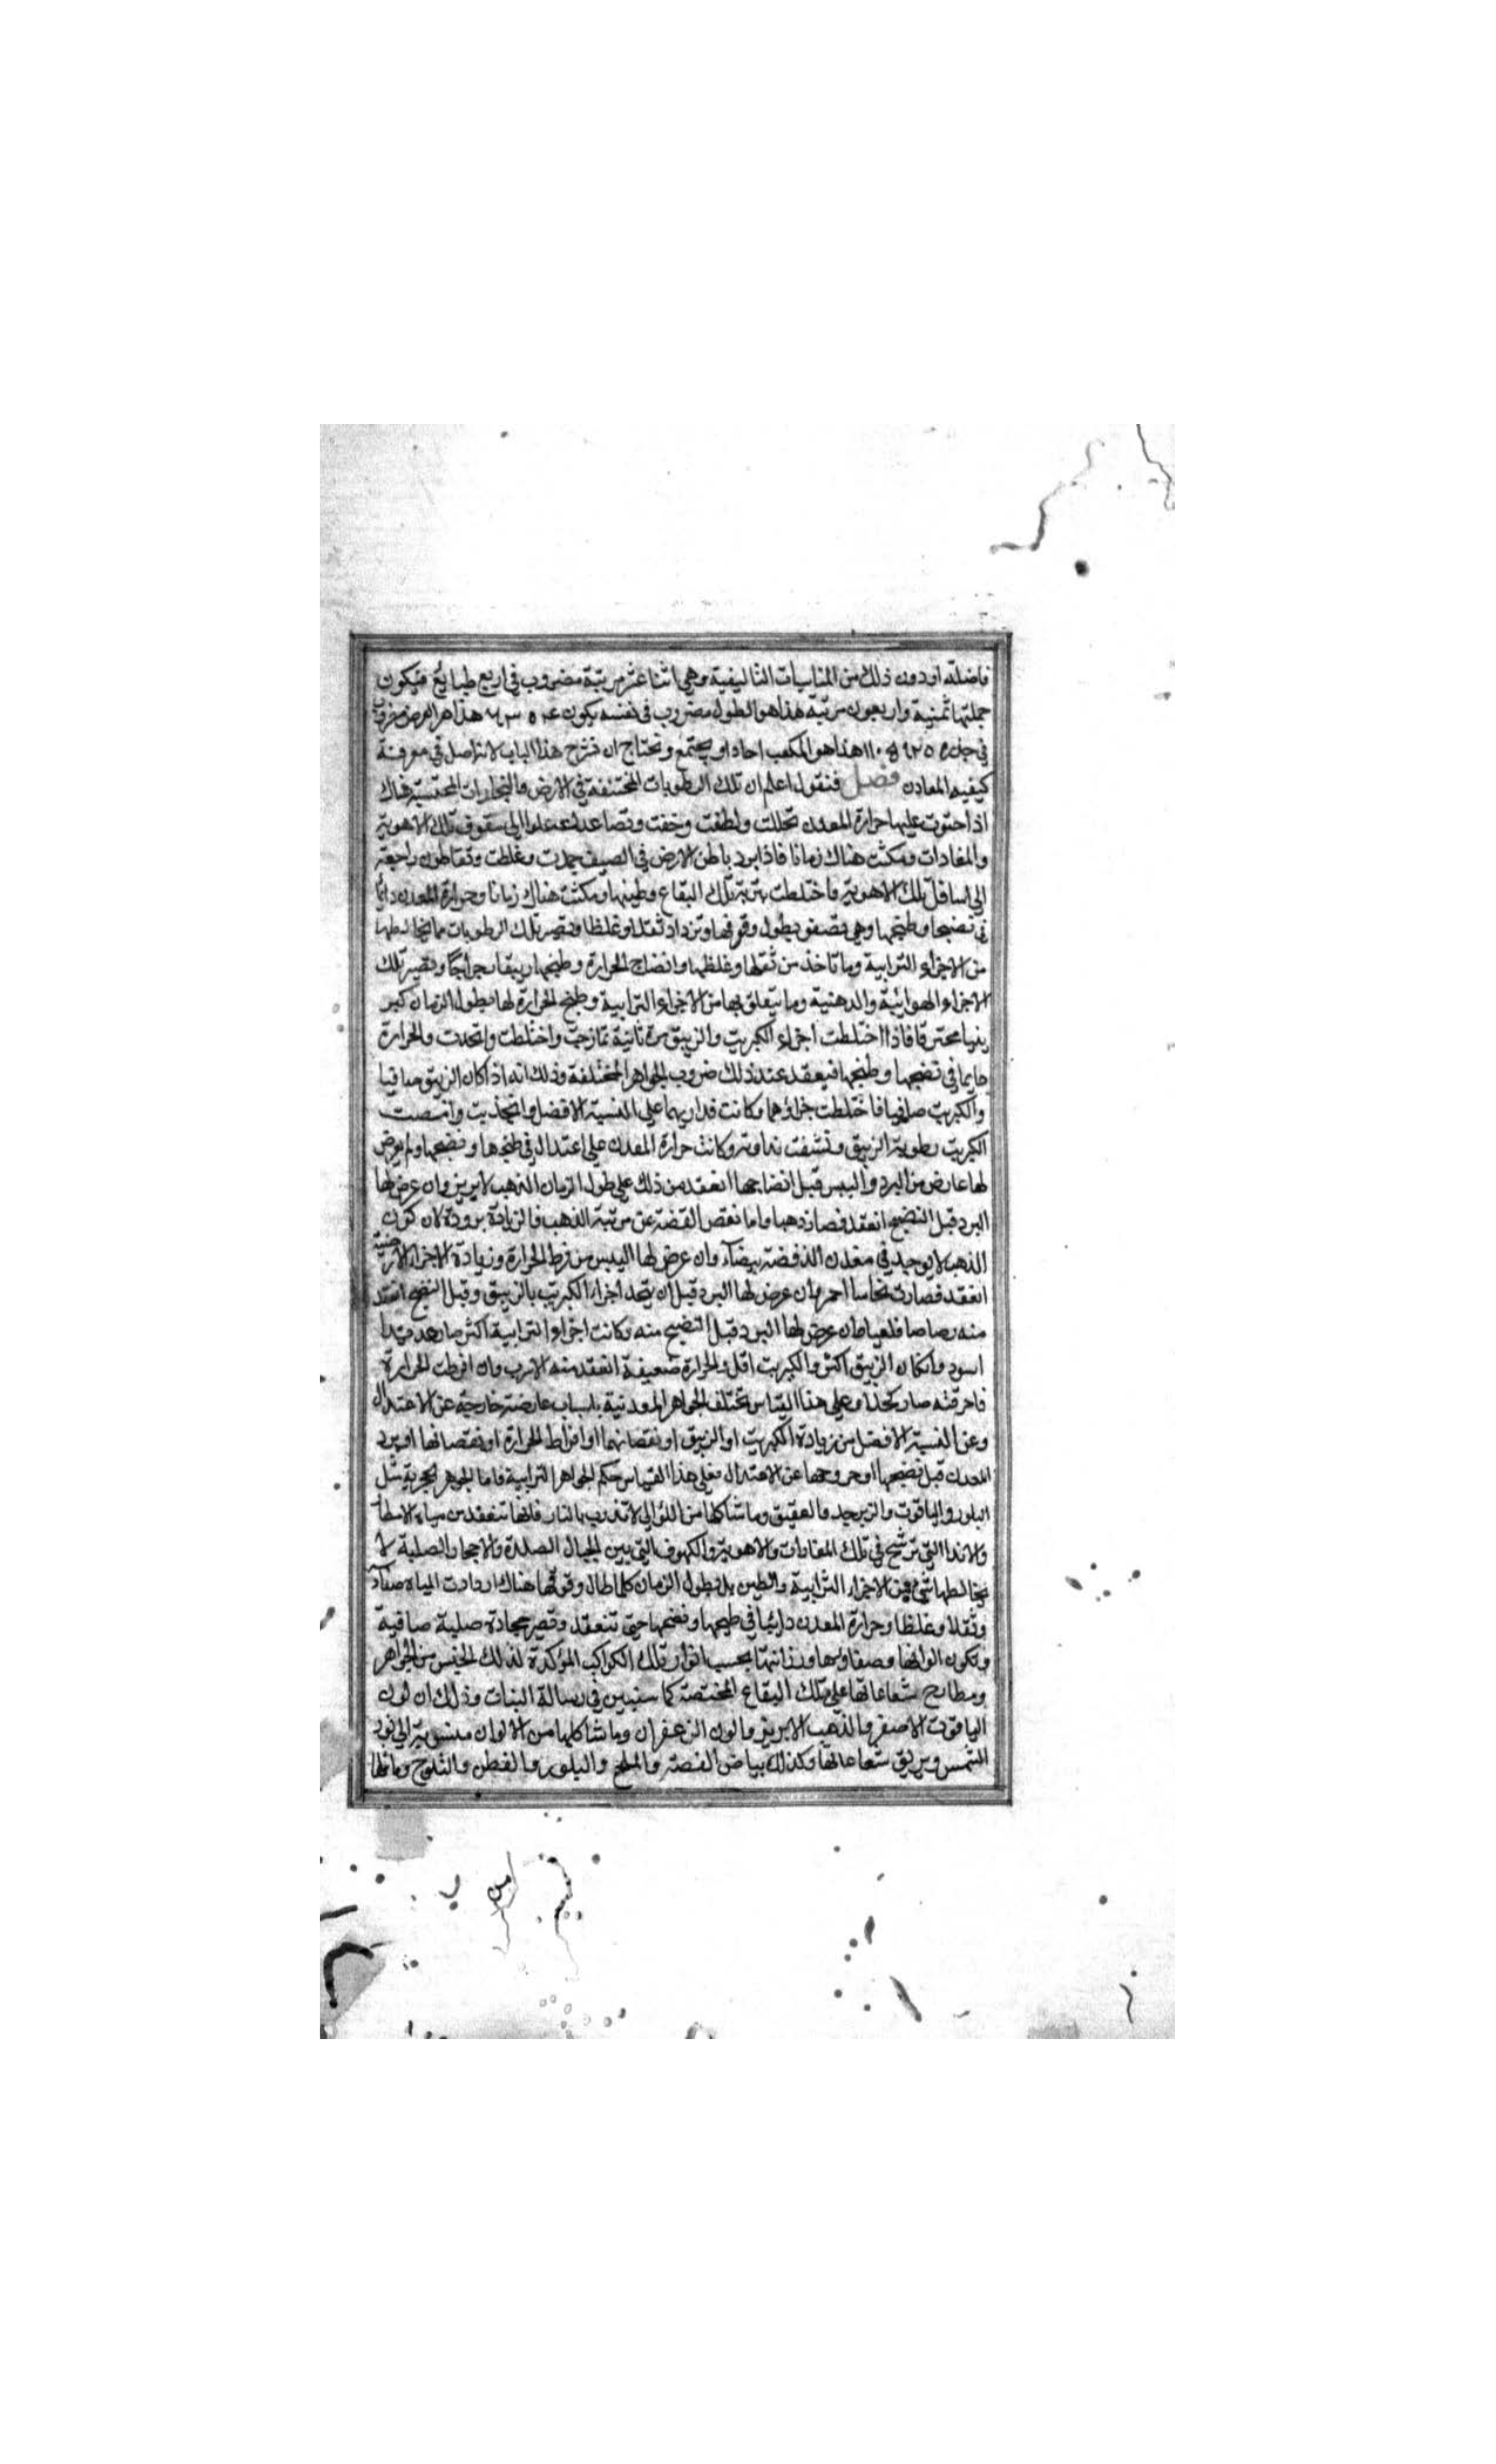 فاضلة او دون ذلك من المناسبات التاليفية وهي اثنا عشر مرتبة مضروب في اربع طبائع فيكون
جملتها ثمنية واربعون مرتبة هذا هو الطول مضروب في نفسه يكون ٢٣٠٤ هذا هو العرض مضروب
في هذا هو المكعب احاد او يجتمع ونحتاج ان نشرح هذا الباب لانه اصل في معرفة
كيفيه المعادن فصل فنقول اعلم ان تلك الرطوبات المختنقة في الارض والبخارات المحتبسة هناك
اذا احتوت عليها حرارة المعدن تحللت ولطفت وخفت وتصاعدت علوا الى سقوف تلك الاهوية
والمغارات ومكثت هناك زمانا فاذا برد باطن الارض في الصيف جمدت وغلظت وتقاطرت راجعة
الى اسافل تلك الاهوية واختلطت بتربة تلك البقاع وطينها ومكثت هناك زمانا وحرارة المعدن دائما
في نضجها وطبخها وهي تصفو بطول وقوفها وتزداد ثقلا وغلظا وتصير تلك الرطوبات مما يخالطها
من الاجزاء الترابية وما تاخذ من ثقلها وغلظها وانضاج الحرارة وطبخها زيبقا رجراجا وتصير تلك
الاجزاء الهوائية والدهنية وما يتعلق بها من الاجزاء الترابية وطبخ الحرارة لها بطول الزمان كبر
يتيا محترقا فاذا اختلطت اجزاء الكبريت والزيبق مرة ثانية تمازجت واختلطت واتحدت والحرارة
دايما في نضجها وطبخها فيعقد عند ذلك ضروب الجواهر المختلفة وذلك انه اذا كان الزيبق صافيا
والكبريت صافيا فاختلطت جزاؤهما وكانت قداريهما على النسبة الافضل واتحدت وامتصت
الكبريت رطوبة الزيبق ونشفت نداوته وكانت حرارة المعدن على اعتدال في طبخها ونضجها ولم يعرض
لها عارض من البرد واليبس قبل انضاجها انعقد من ذلك على طول الزمان الذهب الابريز وان عرض لها
البرد قبل النضج انعقد فصار ذهبا واما نقص الفضة عن مرتبة الذهب فالزيادة برودة لان كون
الذهب لا يوجد في معدن الذ فضة بيضآء وان عرض لها اليبس من فرط الحرارة وزيادة الاجزاء الارضية
انعقد فصارت نحاسا احمر وان عرض لها البرد قبل ان يتحد اجزاء الكبريت بالزيبق وقبل النضج انعقد
منه رصاصا قلعيا وان عرض لها البرد قبل النضج منه وكانت اجزاء الترابية اكثر صار حديدا
اسود وان كان الزيبق اكثر والكبريت اقل والحرارة ضعيفة انعقد منه الاسرب وان افرطت الحرارة
فاحرقته صار كحلا وعلى هذا القياس تختلف الجواهر المعدنية باسباب عارضة خارجة عن الاعتدال
وعن النسبة الافضل من زيادة الكبريت او الزيبق او نقصانهما او افراط الحرارة او نقصانها او برد
المعدن قبل نضجها او خروجها عن الاعتدال فعلى هذا القياس حكم الجواهر الترابية فاما الجواهر الحجرية مثل
البلور والياقوت والزبرجد والعقيق وما شاكلها من اللوالى لا تذوب بالنار فانها تنعقد من مياه الامطار
والاندا التي ترشح في تلك المغارات والاهوية والكهوف التي بين الجبال الصلدة والاحجار الصلبة لا
يخالطها شيء من الاجزاء الترابية والطين بل بطول الزمان كلما طال وقوفها هناك ازدادت المياه صفآء
وثقلا وغلظا وحرارة المعدن دائما في طبخها ونضجها حتى تنعقد وتصير حجارة صلبة صافية
وتكون الوانها وصفاوها ورزانتها بحسب انوار تلك الكواكب المؤكدة لذلك الجنس من الجواهر
ومطارح شعاعاتها على تلك البقاع المختصة كما سنبين في رسالة النبات وذلك ان لون
الياقوت الاصفر والذهب الابريز والون الزعفران وما شاكلها من الالوان منسوبة الى نور
الشمس وبريق شعاعاتها وكذلك بياض الفضة والملح والبلور والقطن والثلوج وما
من